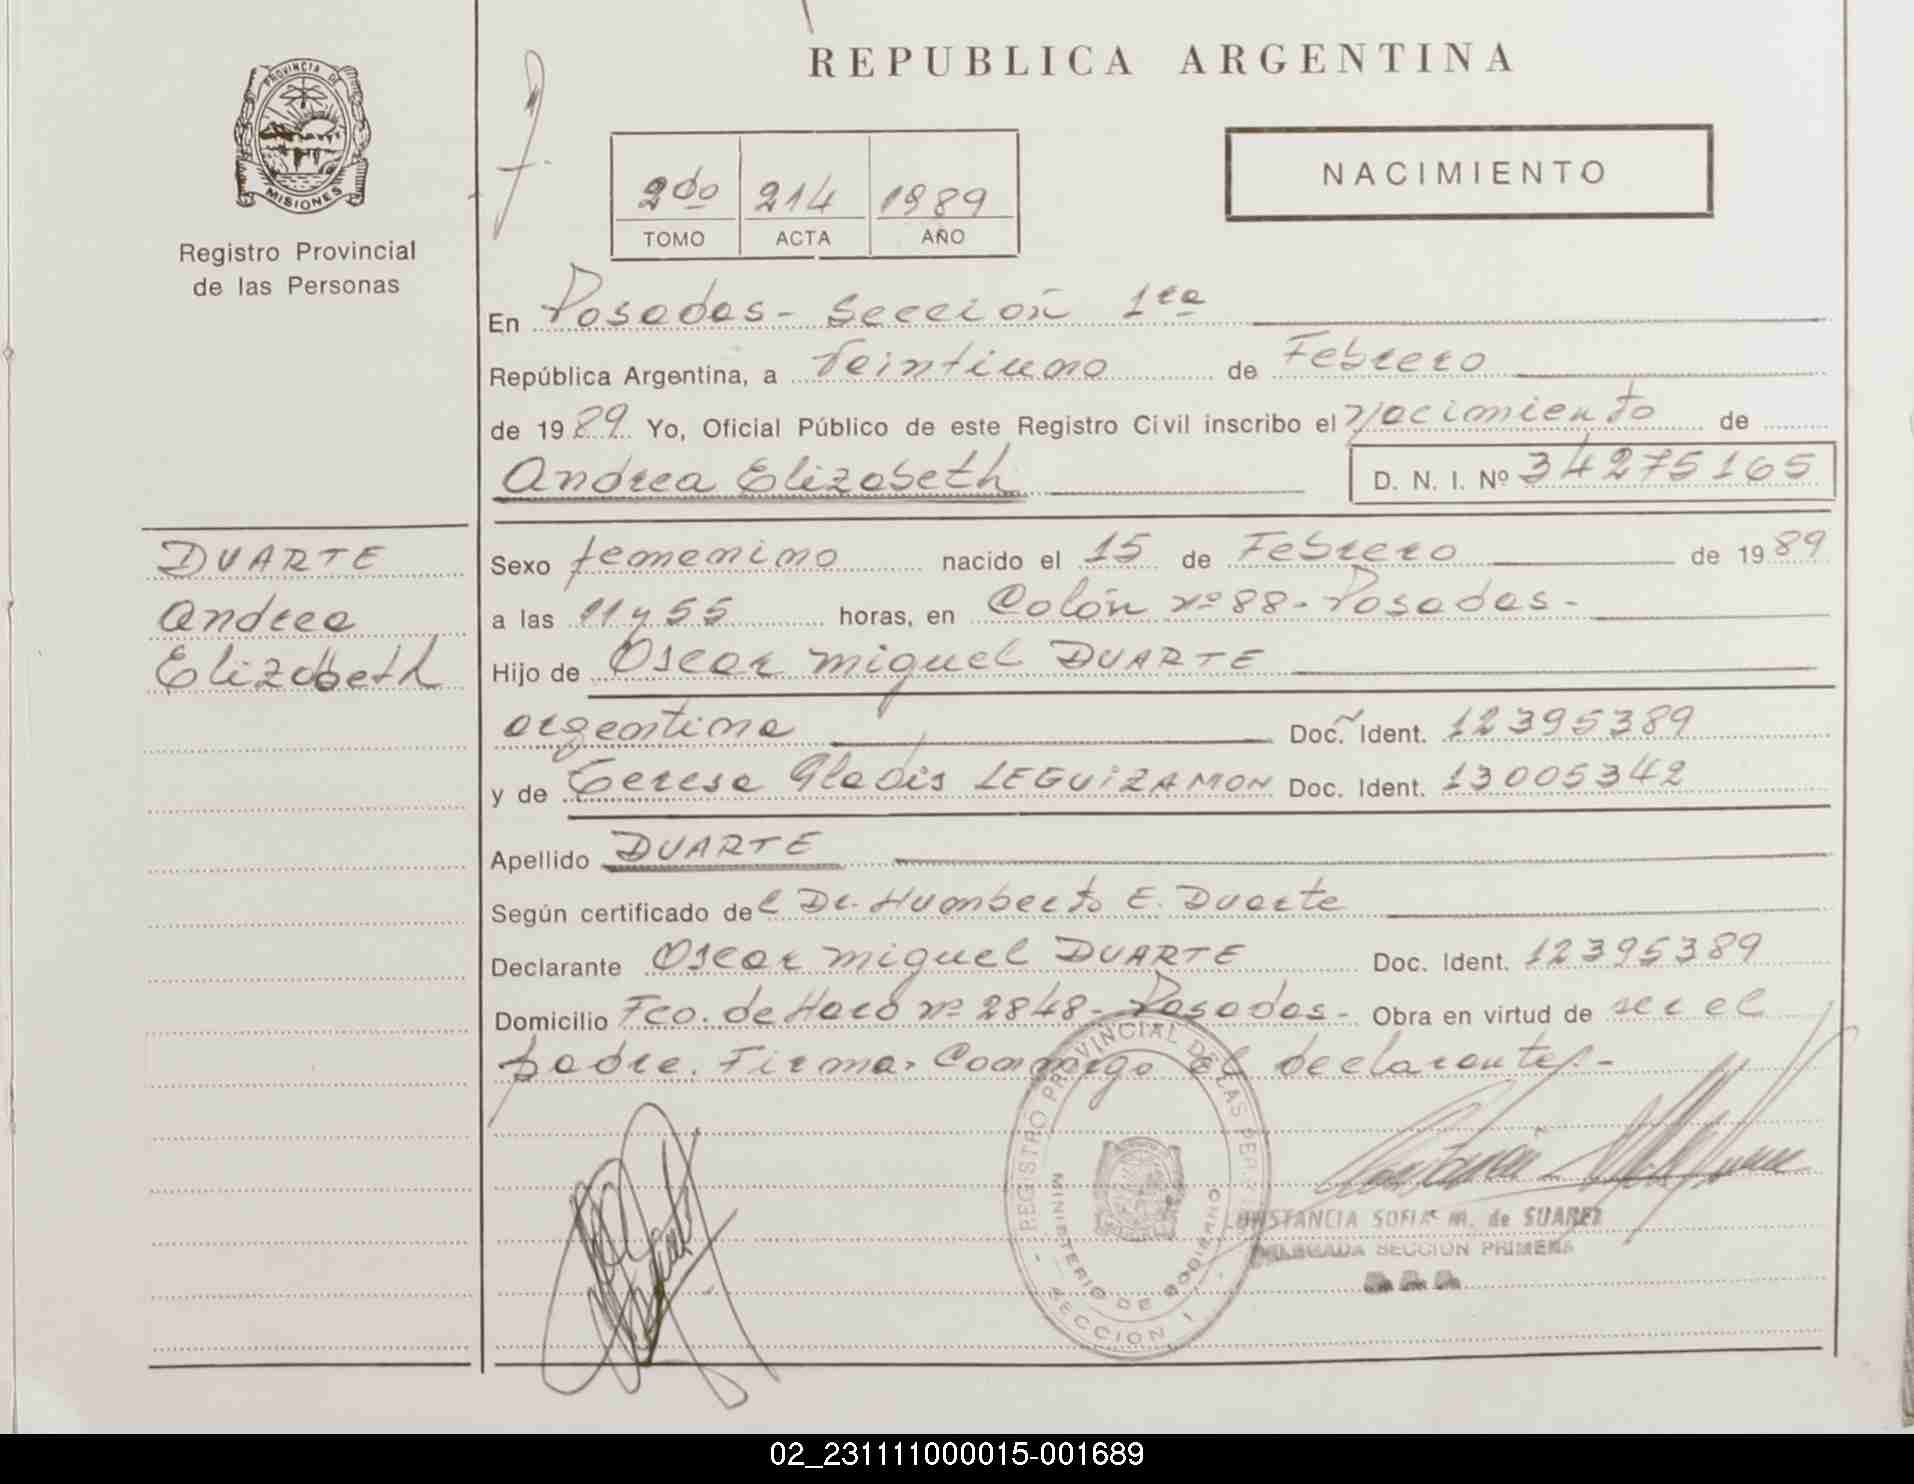 PROVINCIA DE
MISIONES
Registro Provincial
de las Personas
DUARTE
Andrea
Elizabeth
REPUBLICA ARGENTINA
2do 214 1989
TOMO ACTA AÑO
NACIMIENTO
En Posadas - Sección 1ra
República Argentina, a Veintiuno de Febrero
de 1989. Yo, Oficial Público de este Registro Civil inscribo el Nacimiento de
Andrea Elizabeth D. N. I. Nº 34275165
Sexo femenino nacido el 15 de Febrero de 1989
a las 11 y 55 horas, en Colón nº 88 - Posadas -
Hijo de Oscar Miguel DUARTE
argentina Doc. Ident. 12395389
y de Teresa Gladis LEGUIZAMON Doc. Ident. 13005342
Apellido DUARTE
Según certificado del Dr. Humberto E. Duarte
Declarante Oscar Miguel DUARTE Doc. Ident. 12395389
Domicilio Fco. de Haro nº 2848 - Posadas - Obra en virtud de ser el
padre. Firma. Conmigo el declarante. -
REGISTRO PROVINCIAL DE LAS PERS
MINISTERIO DE GOBIERNO
- SECCION 1 -
CONSTANCIA SOFIA M. de SUAREZ
DELEGADA SECCION PRIMERA
02_231111000015-001689